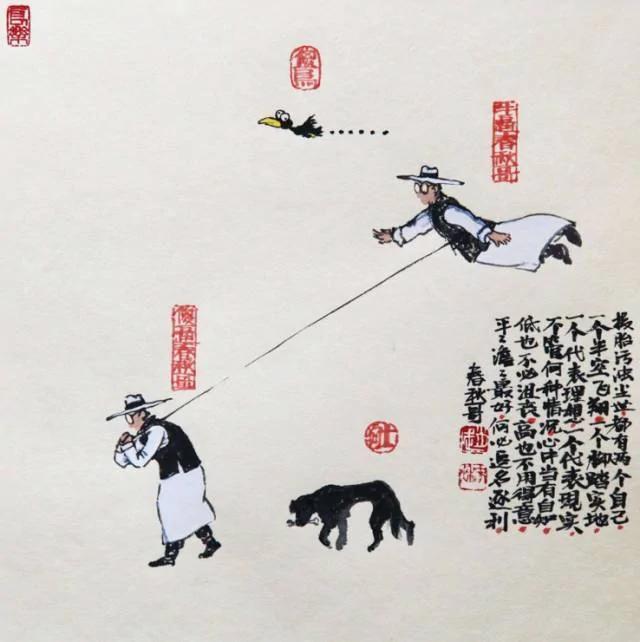 傻鸟
投胎污浊尘世都有两个自己
一个半空飞翔一个脚踏实地
一个代表理想一个代表现实
不管何种情况心中当有自如
低也不必沮丧高也不用得意
平〻澹〻最好何必追名逐利
春秋哥